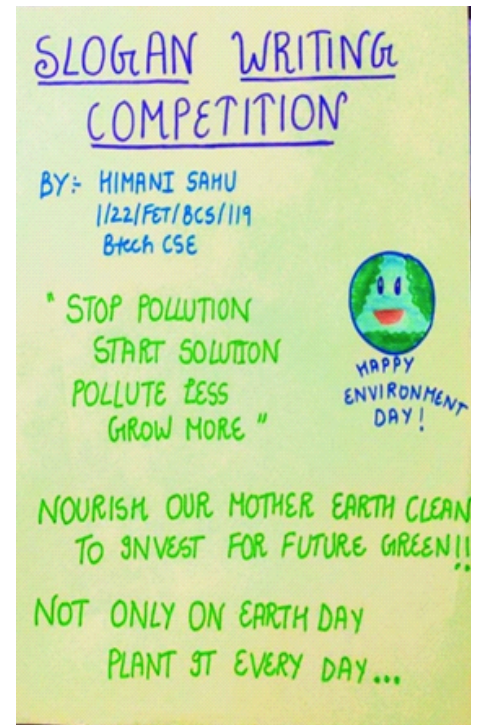 SLOGAN WRITING
COMPETITION
BY:- HIMANI SAHU
1/22/FET/BCS/119
Btech CSE
" STOP POLLUTION
START SOLUTION
POLLUTE LESS
GROW MORE "
HAPPY
ENVIRONMENT
DAY!
NOURISH OUR MOTHER EARTH CLEAN
TO INVEST FOR FUTURE GREEN!!
NOT ONLY ON EARTH DAY
PLANT IT EVERY DAY...